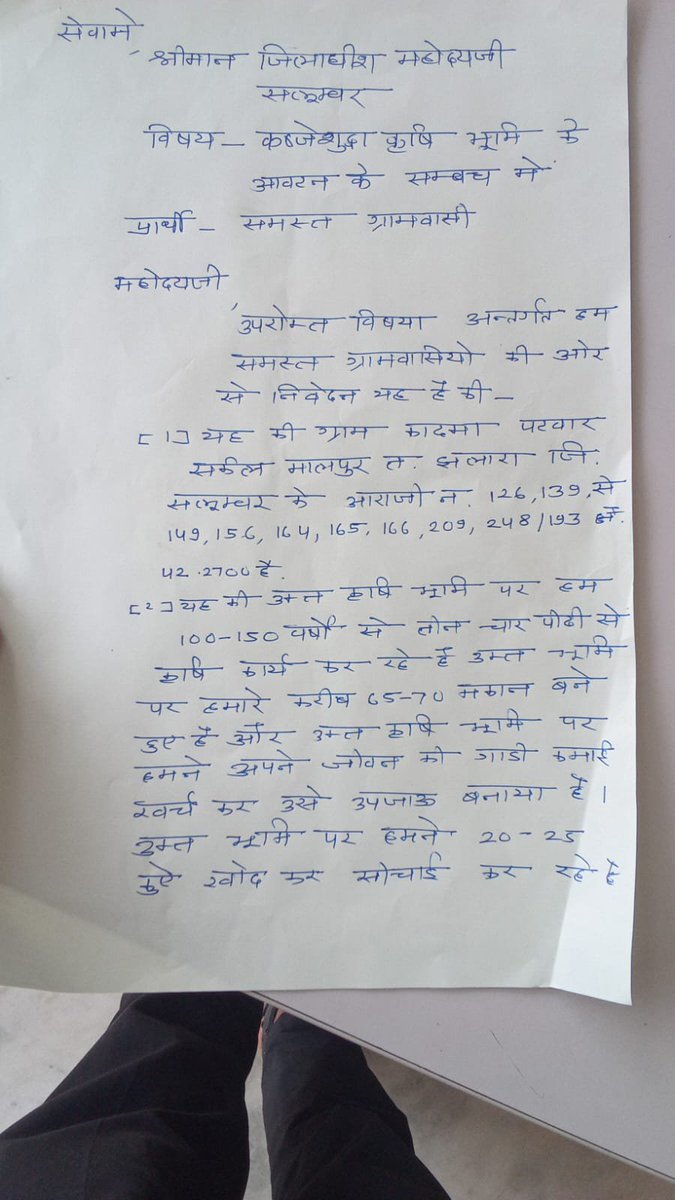 सेवामे,
श्रीमान जिलाधीश महोदयजी
सलूम्बर
विषय - कब्जेशुदा कृषि भूमि के
आवटन के सम्बध मे
प्रार्थी - समस्त ग्रामवासी
महोदयजी
,उपरोक्त विषया अन्तर्गत हम
समस्त ग्रामवासियो की ओर
से निवेदन यह है की -
[1] यह की ग्राम कादमा पटवार
सर्कल मालपुर त. झलारा जि.
सलूम्बर के आराजी न. 126, 139, से
149, 156, 164, 165, 166, 209, 248/193
42.2700 है.
[2] यह की उक्त कृषि भूमि पर हम
100-150 वर्षों से तीन चार पीढी से
कृषि कार्य कर रहे है उक्त भूमि
पर हमारे करीब 65-70 मकान बने
हुए है और उक्त कृषि भूमि पर
हमने अपने जीवन की गाडी कमाई
खर्च कर उसे उपजाऊ बनाया है।
उक्त भूमि पर हमने 20-25
कुऐ खोद कर सीचाई कर रहे है